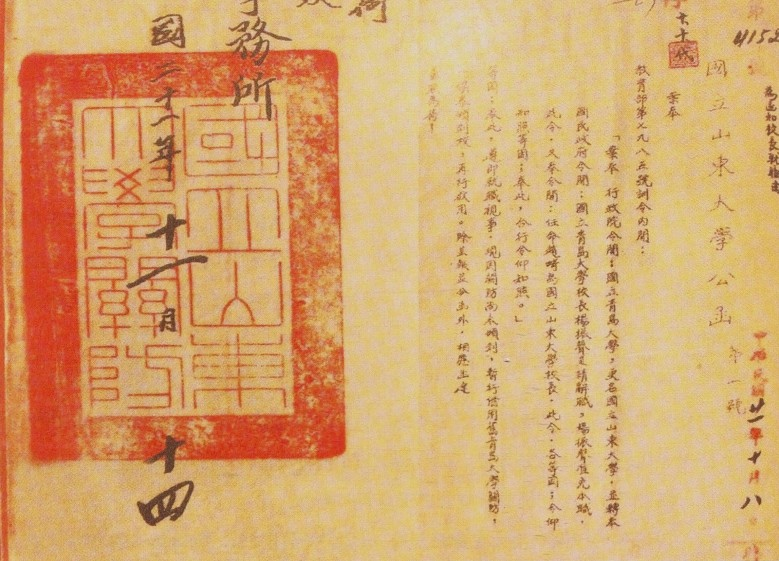 4152
國立山東大學公函 第一號
中華民國廿一年十月八日
案奉
教育部第七九八五號訓令內開：
「案奉 行政院令開：國立青島大學，更名國立山東大學，並轉奉
國民政府令開：國立青島大學校長楊振聲呈請辭職，楊振聲准免本職，
此令。又奉令開：任命趙畸為國立山東大學校長，此令。各等因；令仰
知照等因；奉此，合行令仰知照。」
等因；奉此，遵即就職視事。現因關防尚未頒到，暫行借用舊青島大學關防，
頒到後，再行啟用。除呈報並分函外，相應函達
務所
國二十一年十一月十四
國立山東
大學關防